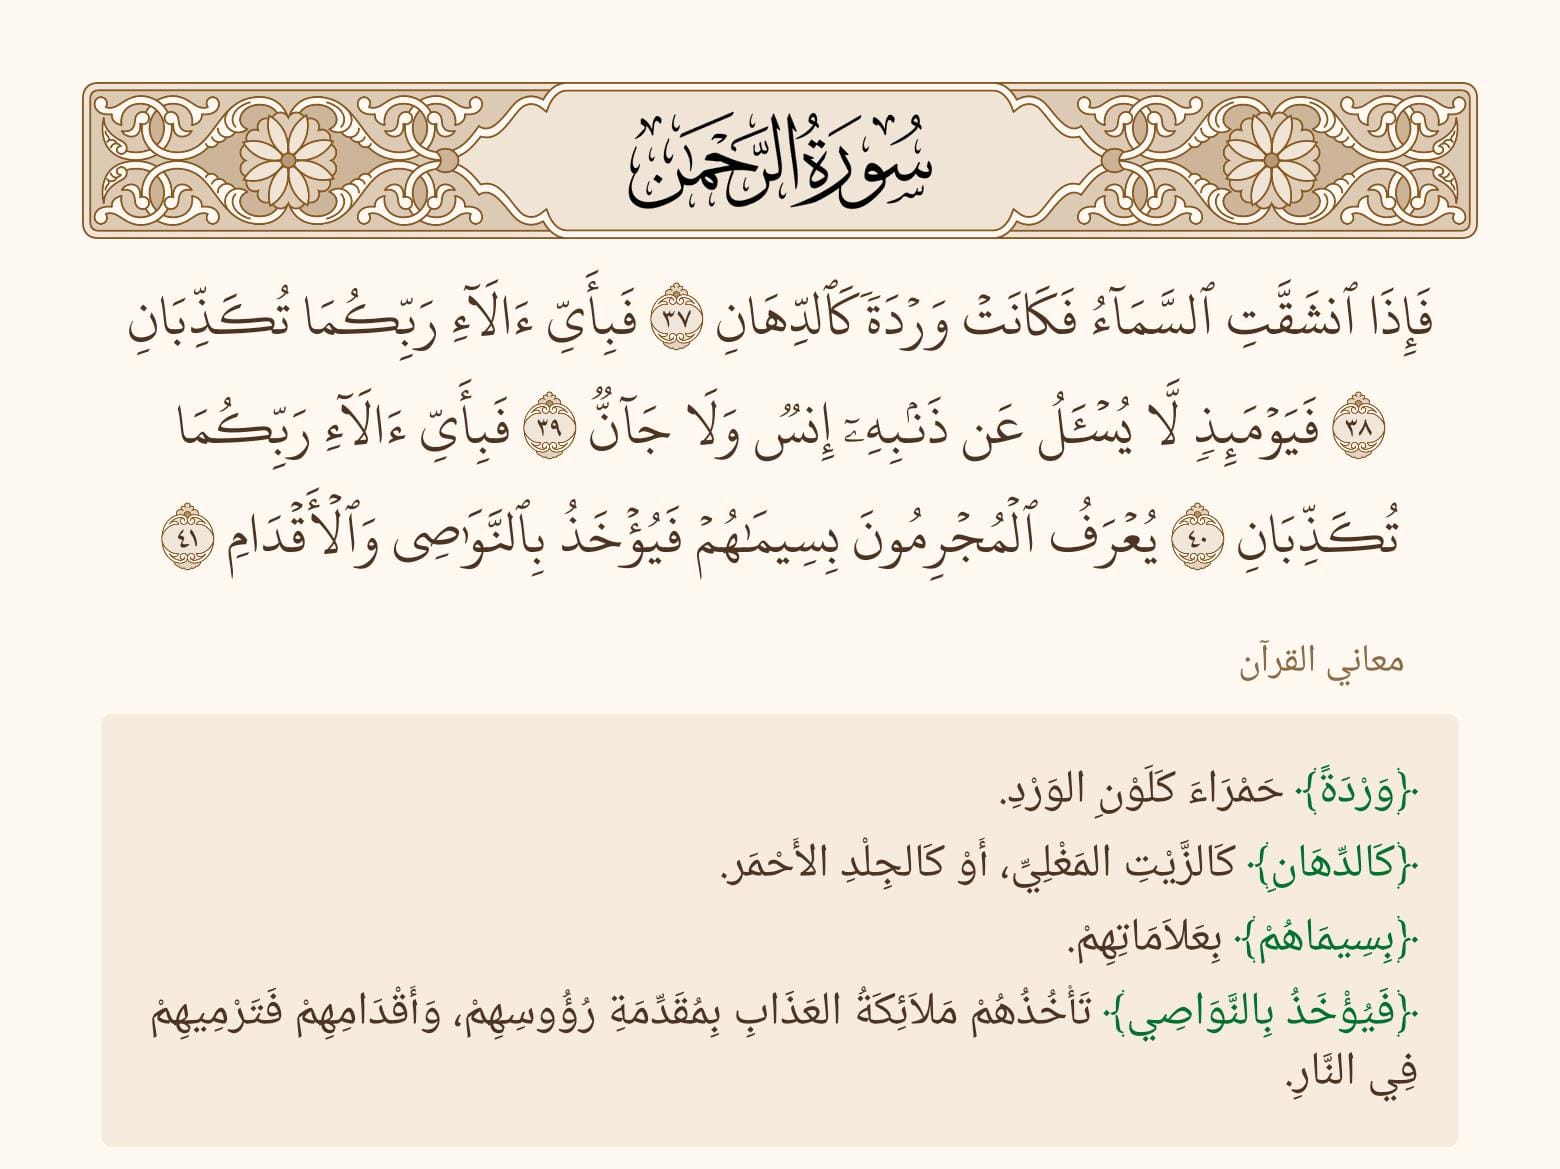 سُورَةُ الرَّحْمَٰن
فَإِذَا ٱنشَقَّتِ ٱلسَّمَآءُ فَكَانَتۡ وَرۡدَةٗ كَٱلدِّهَانِ ٣٧ فَبِأَيِّ ءَالَآءِ رَبِّكُمَا تُكَذِّبَانِ
٣٨ فَيَوۡمَئِذٖ لَّا يُسۡـَٔلُ عَن ذَنۢبِهِۦٓ إِنسٞ وَلَا جَآنّٞ ٣٩ فَبِأَيِّ ءَالَآءِ رَبِّكُمَا
تُكَذِّبَانِ ٤٠ يُعۡرَفُ ٱلۡمُجۡرِمُونَ بِسِيمَٰهُمۡ فَيُؤۡخَذُ بِٱلنَّوَٰصِي وَٱلۡأَقۡدَامِ ٤١
معاني القرآن
﴿وَرْدَةً﴾ حَمْرَاءَ كَلَوْنِ الوَرْدِ.
﴿كَالدِّهَانِ﴾ كَالزَّيْتِ المَغْلِيِّ، أَوْ كَالجِلْدِ الأَحْمَر.
﴿بِسِيمَاهُمْ﴾ بِعَلاَمَاتِهِمْ.
﴿فَيُؤْخَذُ بِالنَّوَاصِي﴾ تَأْخُذُهُمْ مَلاَئِكَةُ العَذَابِ بِمُقَدِّمَةِ رُؤُوسِهِمْ، وَأَقْدَامِهِمْ فَتَرْمِيهِمْ
فِي النَّارِ.